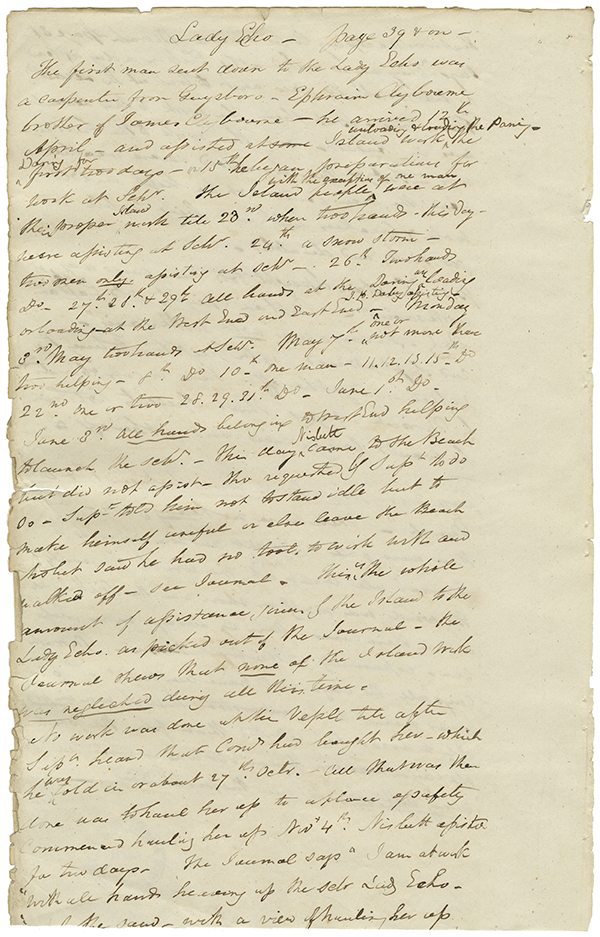 Lady Echo — page 39 & on —
The first man sent down to the Lady Echo was
a carpenter from Guysboro — Ephraim Clybourne
brother of James Clybourne — he arrived 12th
April — and assisted at some Island work, the
unloading & loading the Daring —
first two days — 15th he began preparations for
work at Schr. The Island people, were at
with the exception of one man
their proper Island work till 23rd when two hands — this day —
were assisting at Schr. 24th a snow storm —
two men only assisting at Schr — 26th Two hands
Do — 27th 28th & 29th all hands at the Daring unloading
or loading at the West End and East End — Monday
3rd May two hands at Schr. May 7th one or not more than
two helping — 8th Do 10th one man — 11. 12. 13. 15th Do
22nd one or two 28. 29. 31st Do — June 1st Do —
June 3rd all hands belonging to West End helping
to launch the Schr. — this day Nisbett came to the Beach
but did not assist — tho requested by Supt to do
so — Supt told him not to stand idle but to
make himself useful or else leave the Beach
Nisbet said he had no tools to work with and
walked off — see Journal. This is the whole
amount of assistance given by the Island to the
Lady Echo as picked out of the Journal — the
Journal shews that none of the Island work
was neglected during all this time.
No work was done at the Vessel till after
Supt heard that Cond had bought her — which
he was told in or about 27th Octr. — all that was then
done was to haul her up to a place of safety
Commenced hauling her up Novr 4th. Nisbett assisted
for two days — The Journal says "I am at work
"with all hands heaving up the schr Lady Echo —
the sand — with a view of hauling her up